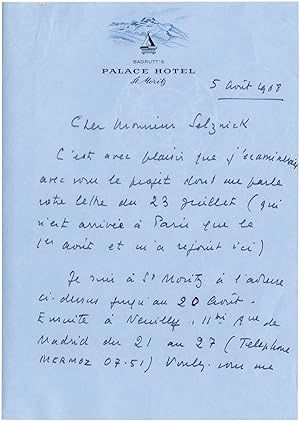 BADRUTT'S
PALACE HOTEL
St. Moritz
5 Août 1958
Cher Monsieur Selznick
C'est avec plaisir que j'examinerais
avec vous le projet dont me parle
votre lettre du 23 Juillet (qui
n'est arrivée à Paris que le
1er Août et m'a rejoint ici)
Je suis à St Moritz à l'adresse
ci-dessus jusqu'au 20 Août.
Ensuite à Neuilly, 11 bis Rue de
Madrid du 21 au 27 (Telephone
MERMOZ 07.51) Voulez-vous me